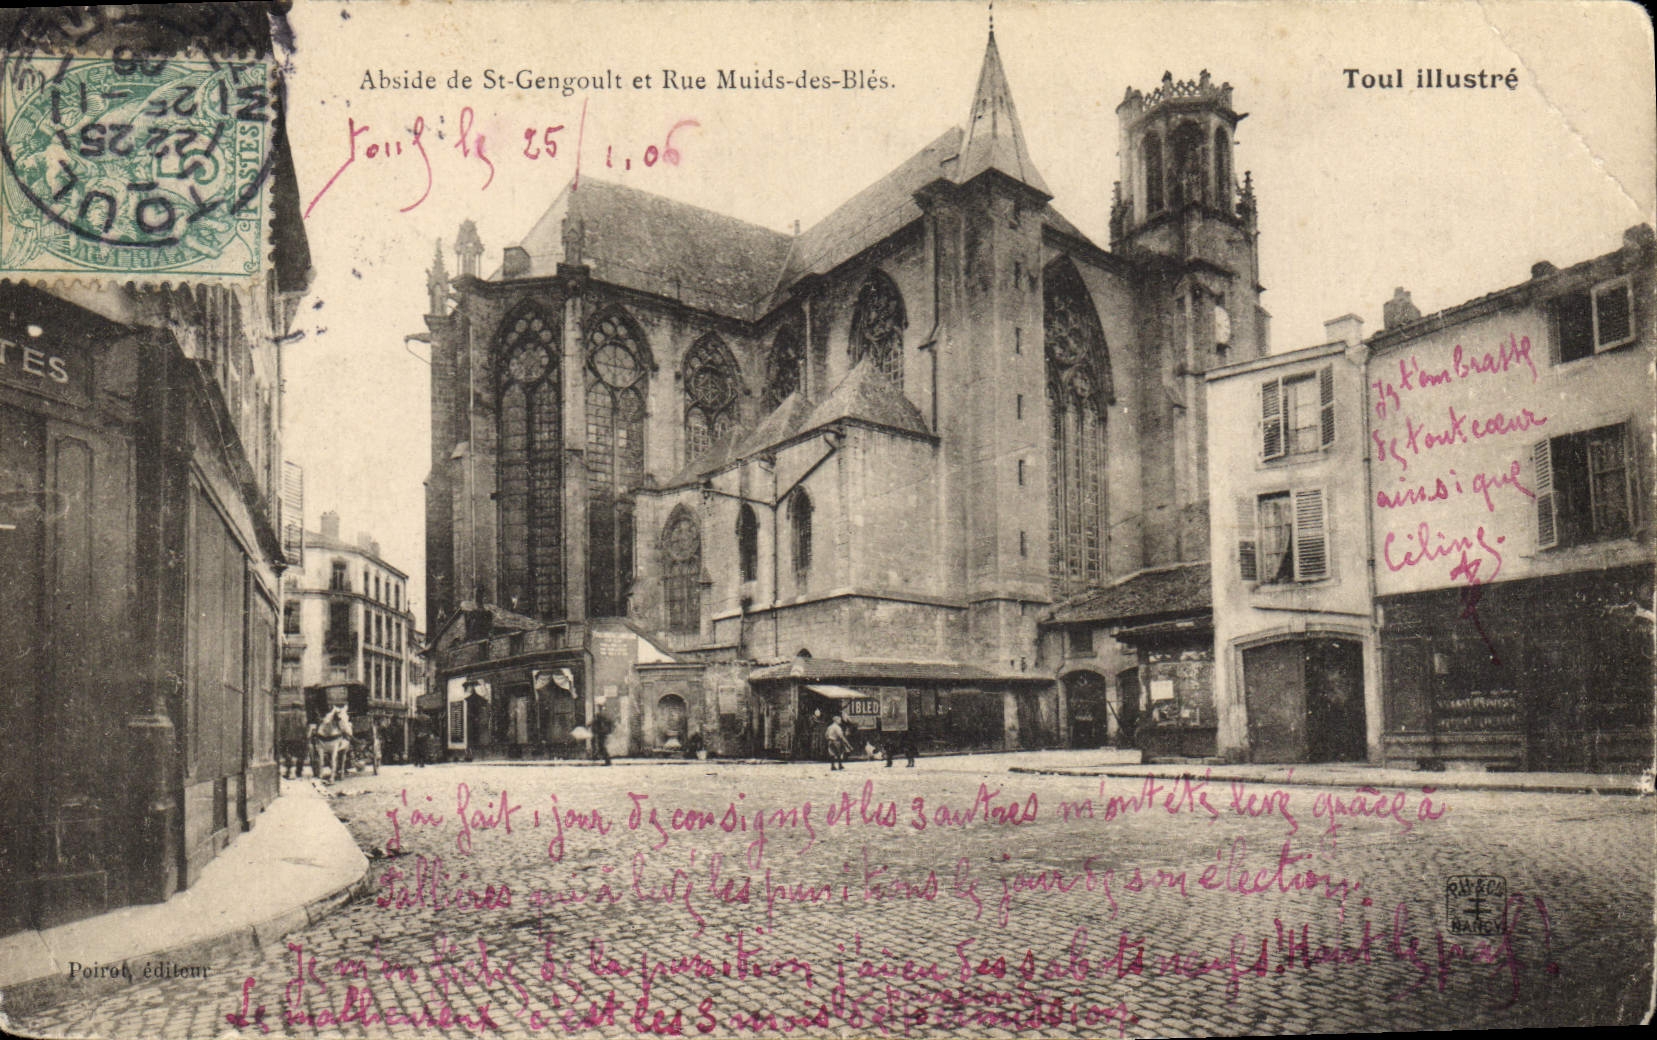 Abside de St-Gengoult et Rue Muids-des-Blés.
Toul illustré
Toul le 25/1.06
TOUL
22 25
25 -11
06
5
POSTES
TES
IBLED
Je t'embrasse
de tout cœur
ainsi que
Céline.
j'ai fait 1 jour de consigne et les 3 autres m'ont été levé grâce à
Fallières qui à levé les punitions le jour de son élection.
Je m'en fiche de la punition j'ai eu des sabots neufs! Haut le
Le malheureux c'est les 3 mois de permission
P.H. & Cie
NANCY
Poirot, éditeur